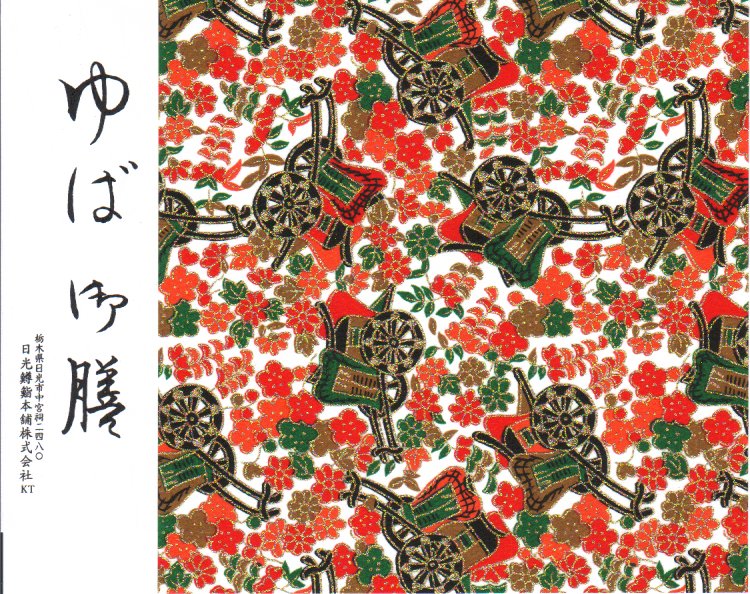 ゆば御膳
栃木県日光市中宮祠二四八〇
日光鱒鮨本舗株式会社
KT